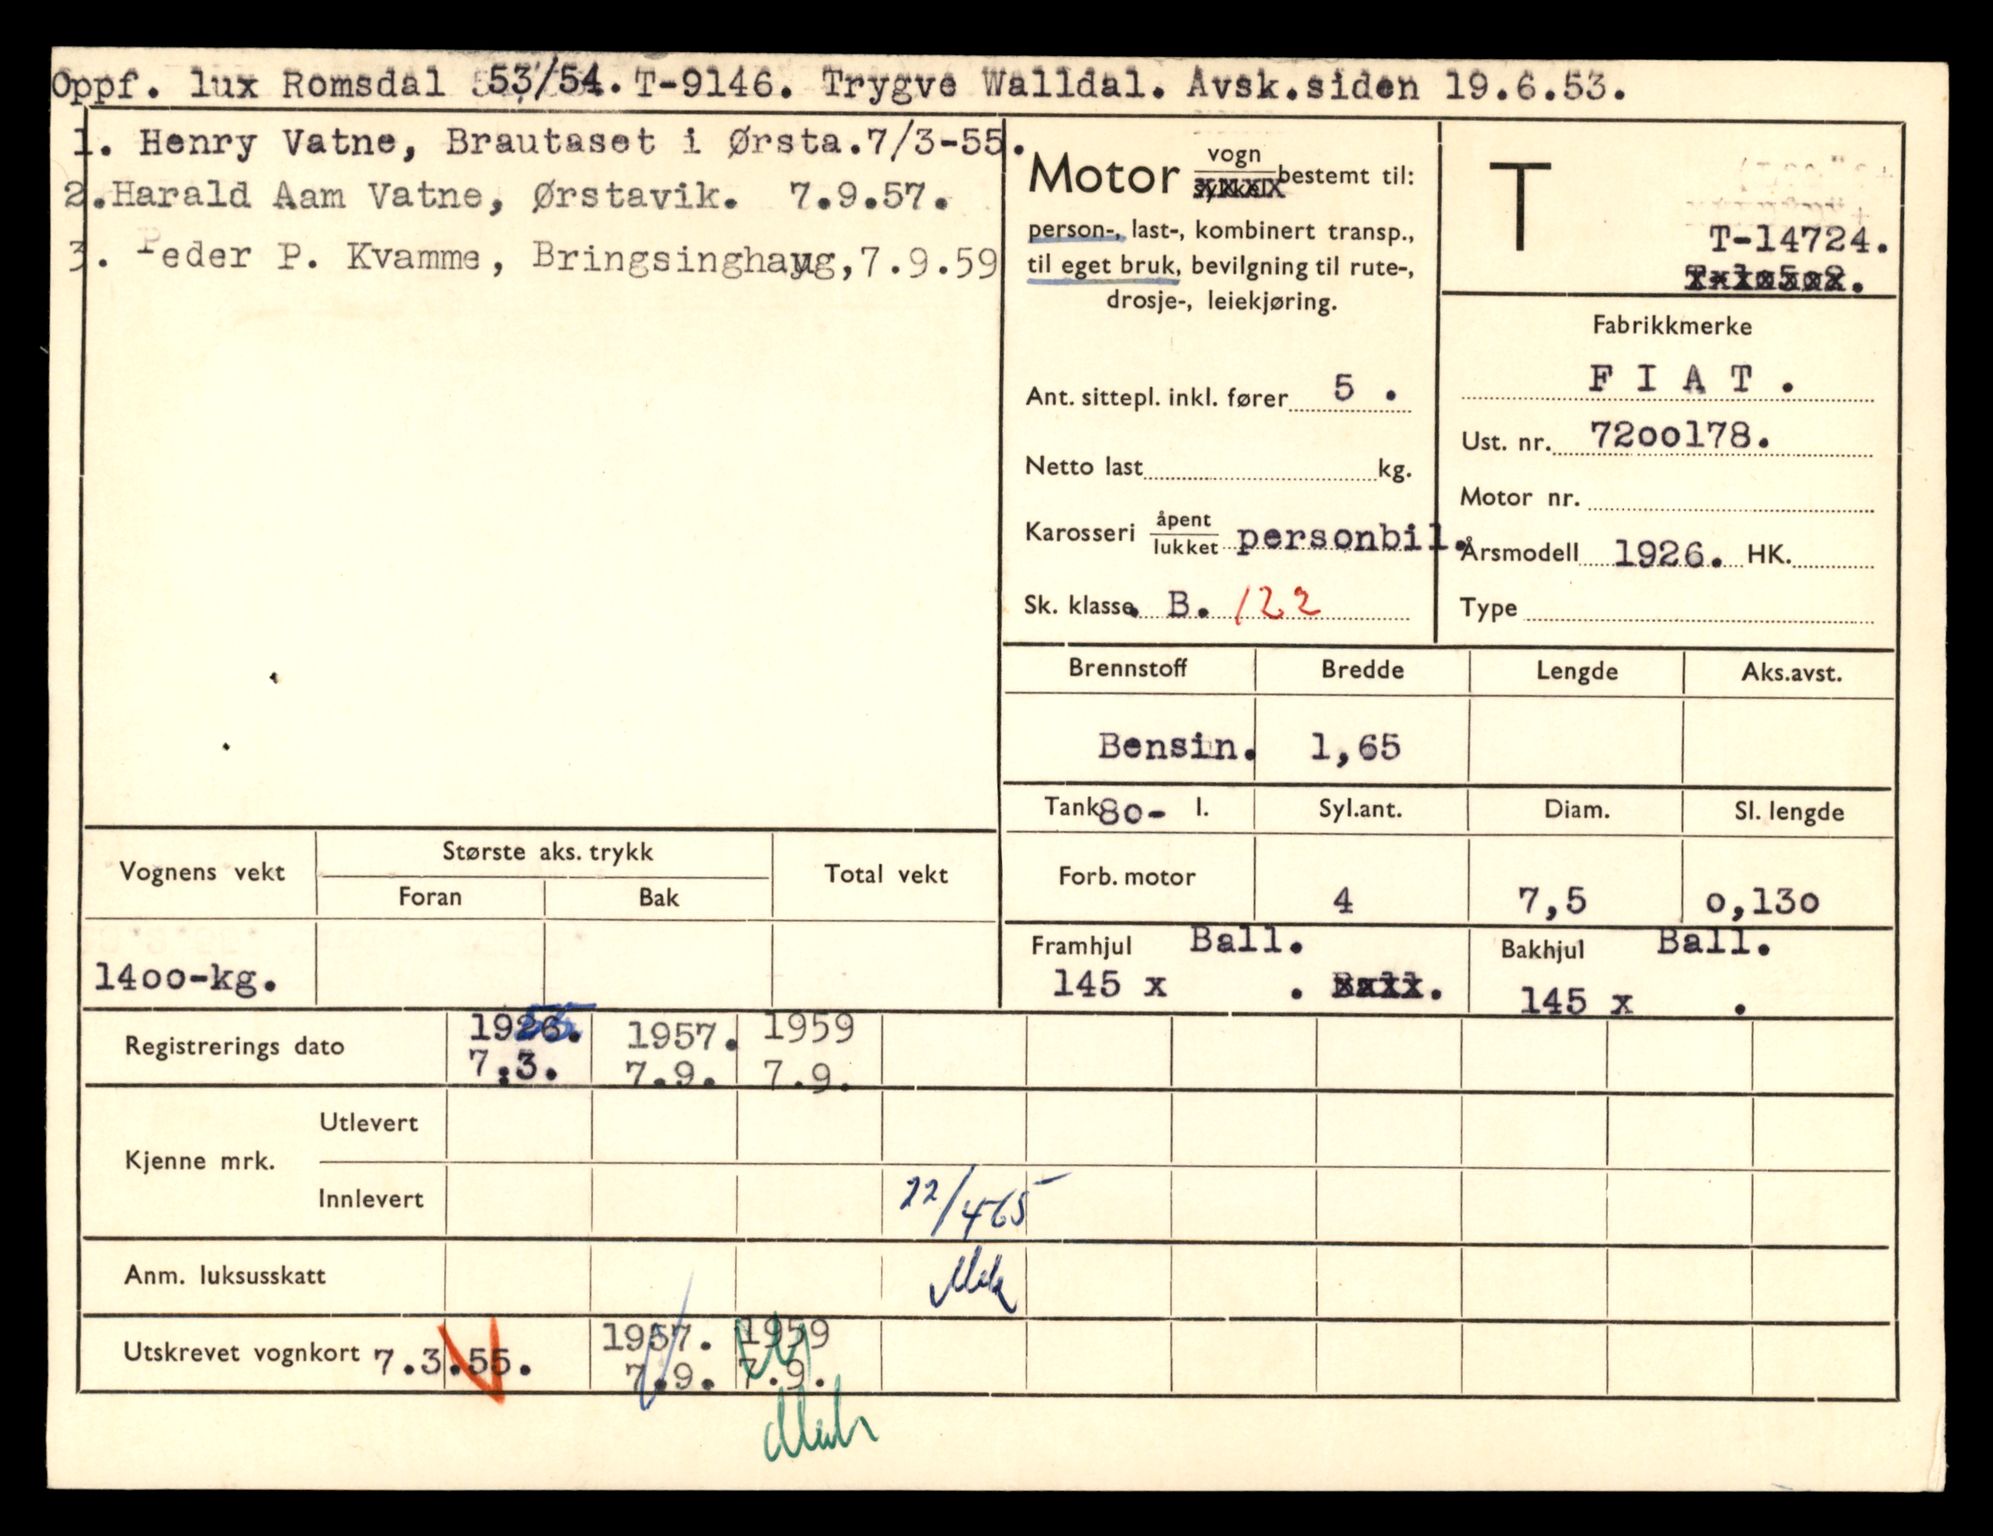 Oppf. lux Romsdal 53/54. T-9146. Trygve Walldal. Avsk.siden 19.6.53.
1. Henry Vatne, Brautaset i Ørsta.7/3-55.
2.Harald Aam Vatne, Ørstavik. 7.9.57.
3. Peder P. Kvamme, Bringsinghaug,7.9.59
Motor vogn bestemt til:
person-, last-, kombinert transp.,
til eget bruk, bevilgning til rute-,
drosje-, leiekjøring.
Ant. sittepl. inkl. fører 5 .
Netto last kg.
Karosseri åpent lukket personbil.
Sk. klasse. B. 122
T
T-14724.
Fabrikkmerke
F I A T .
Ust. nr. 72oo178.
Motor nr.
Årsmodell 1926. HK.
Type
Brennstoff Bredde Lengde Aks.avst.
Bensin. 1,65
Tank 8o- l. Syl.ant. Diam. Sl. lengde
Forb. motor 4 7,5 o,13o
Framhjul Ball. Bakhjul Ball.
145 x . 145 x .
Vognens vekt Største aks. trykk Total vekt
Foran Bak
14oo-kg.
Registrerings dato 1955. 1957. 1959
7.3. 7.9. 7.9.
Kjenne mrk.
Utlevert
Innlevert 22/4-65
Anm. luksusskatt
Utskrevet vognkort 7.3.55. 1957. 1959
7.9. 7.9.